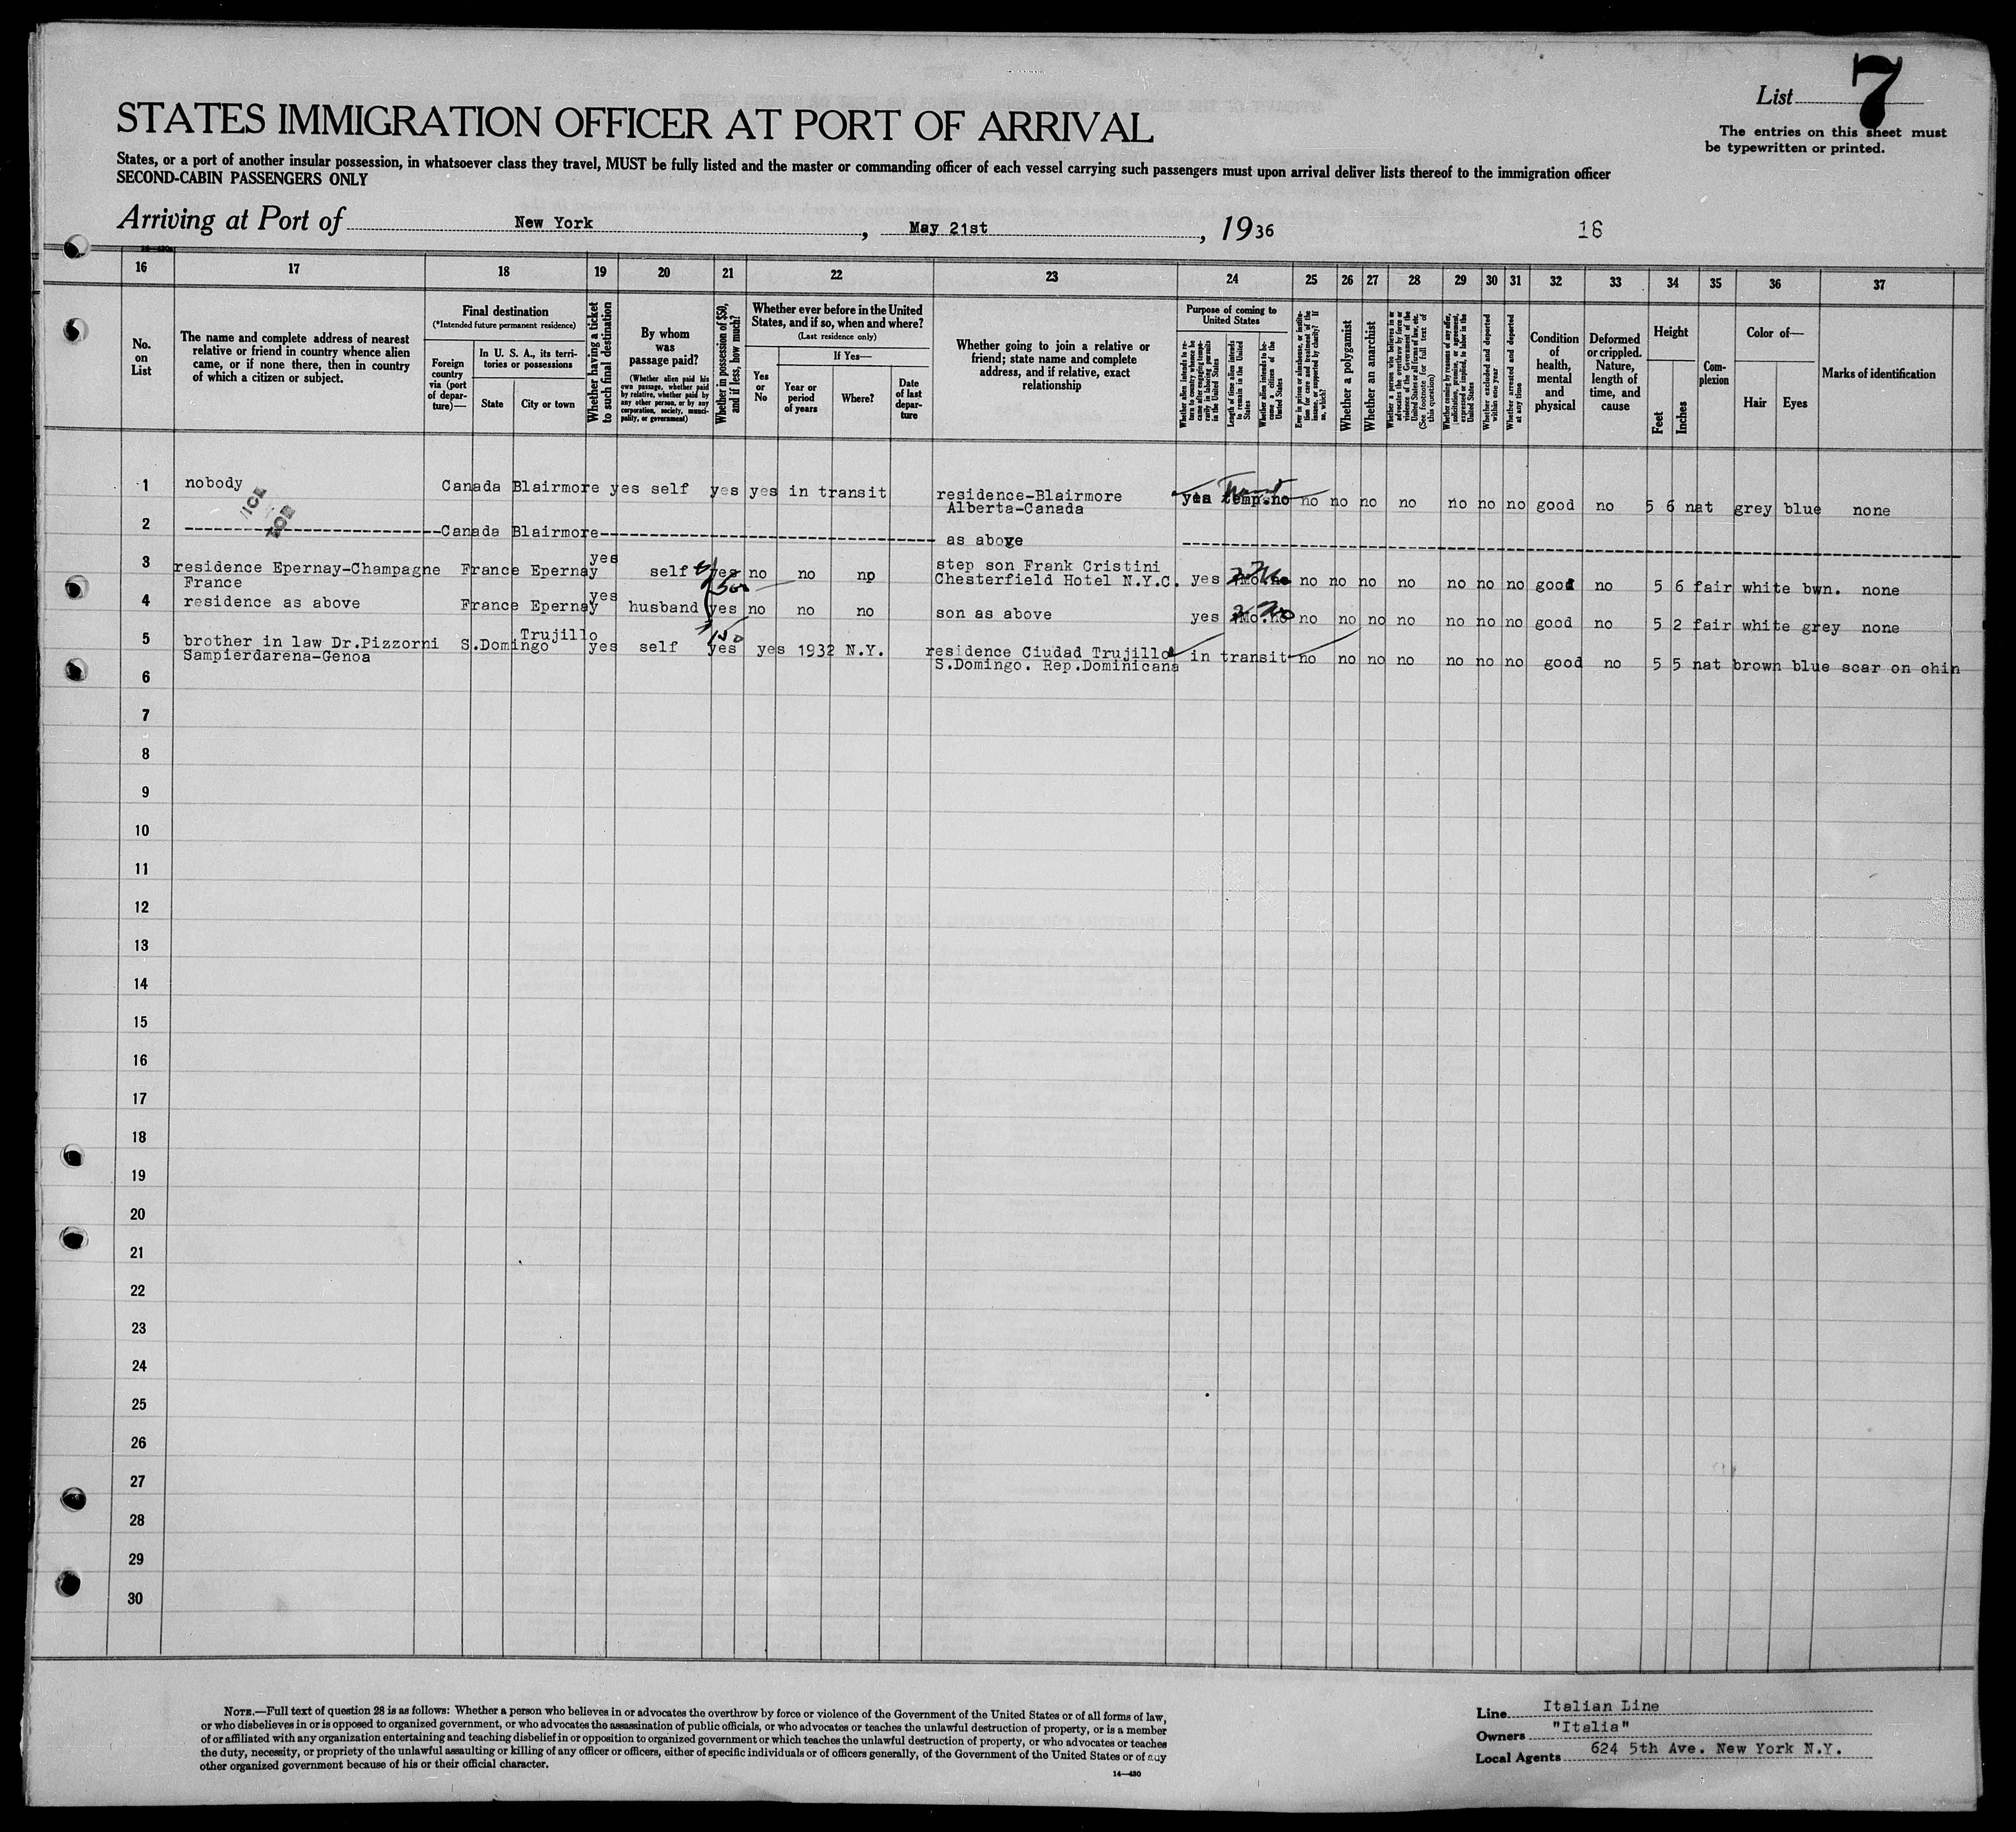 List 7
The entries on this sheet must
be typewritten or printed.
STATES IMMIGRATION OFFICER AT PORT OF ARRIVAL
States, or a port of another insular possession, in whatsoever class they travel, MUST be fully listed and the master or commanding officer of each vessel carrying such passengers must upon arrival deliver lists thereof to the immigration officer
SECOND-CABIN PASSENGERS ONLY
Arriving at Port of New York, May 21st, 1936
16
16 17 18 19 20 21 22 23 24 25 26 27 28 29 30 31 32 33 34 35 36 37
No.
on
List
The name and complete address of nearest
relative or friend in country whence alien
came, or if none there, then in country
of which a citizen or subject.
Final destination
(*Intended future permanent residence)
Foreign
country
via (port
of depar-
ture)—
In U. S. A., its terri-
tories or possessions
State
City or town
Whether having a ticket
to such final destination
By whom
was
passage paid?
(Whether alien paid his
own passage, whether paid
by relative, whether paid by
any other person, or by any
corporation, society, munici-
pality, or government)
Whether in possession of $50,
and if less, how much?
Whether ever before in the United
States, and if so, when and where?
(Last residence only)
Yes
or
No
If Yes—
Year or
period
of years
Where?
Date
of last
depar-
ture
Whether going to join a relative or
friend; state name and complete
address, and if relative, exact
relationship
Purpose of coming to
United States
Whether alien intends to re-
turn to country whence he
came after engaging tempo-
rarily in laboring pursuits
in the United States
Length of time alien intends
to remain in the United
States
Whether alien intends to be-
come a citizen of the
United States
Ever in prison or almshouse, or institu-
tion for care and treatment of the
insane, or supported by charity? If
so, which?
Whether a polygamist
Whether an anarchist
Whether a person who believes in or
advocates the overthrow by force or
violence of the Government of the
United States or all forms of law, etc.
(See footnote for full text of
this question)
Whether coming by reason of any offer,
solicitation, promise, or agreement,
expressed or implied, to labor in the
United States
Whether excluded and deported
within one year
Whether arrested and deported
at any time
Condition
of
health,
mental
and
physical
Deformed
or crippled.
Nature,
length of
time, and
cause
Height
Feet
Inches
Com-
plexion
Color of—
Hair
Eyes
Marks of identification
1 nobody Canada Blairmore yes self yes yes in transit residence-Blairmore yes temp.no no no no no no no no good no 5 6 nat grey blue none
Alberta-Canada
2 Canada Blairmore as above
3 residence Epernay-Champagne France Epernay yes self yes no no no step son Frank Cristini yes no no no no no no no good no 5 6 fair white bwn. none
France 500 Chesterfield Hotel N.Y.C.
4 residence as above France Epernay yes husband yes no no no son as above yes no no no no no no no good no 5 2 fair white grey none
5 brother in law Dr.Pizzorni S.Domingo Trujillo yes self yes 150 yes 1932 N.Y. residence Ciudad Trujillo in transit no no no no no no no good no 5 5 nat brown blue scar on chin
Sampierdarena-Genoa S.Domingo. Rep.Dominicana
6
7
8
9
10
11
12
13
14
15
16
17
18
19
20
21
22
23
24
25
26
27
28
29
30
NOTE.—Full text of question 28 is as follows: Whether a person who believes in or advocates the overthrow by force or violence of the Government of the United States or of all forms of law,
or who disbelieves in or is opposed to organized government, or who advocates the assassination of public officials, or who advocates or teaches the unlawful destruction of property, or is a member
of or affiliated with any organization entertaining and teaching disbelief in or opposition to organized government or which teaches the unlawful destruction of property, or who advocates or teaches
the duty, necessity, or propriety of the unlawful assaulting or killing of any officer or officers, either of specific individuals or of officers generally, of the Government of the United States or of any
other organized government because of his or their official character.
14—430
Line Italian Line
Owners "Italia"
Local Agents 624 5th Ave. New York N.Y.